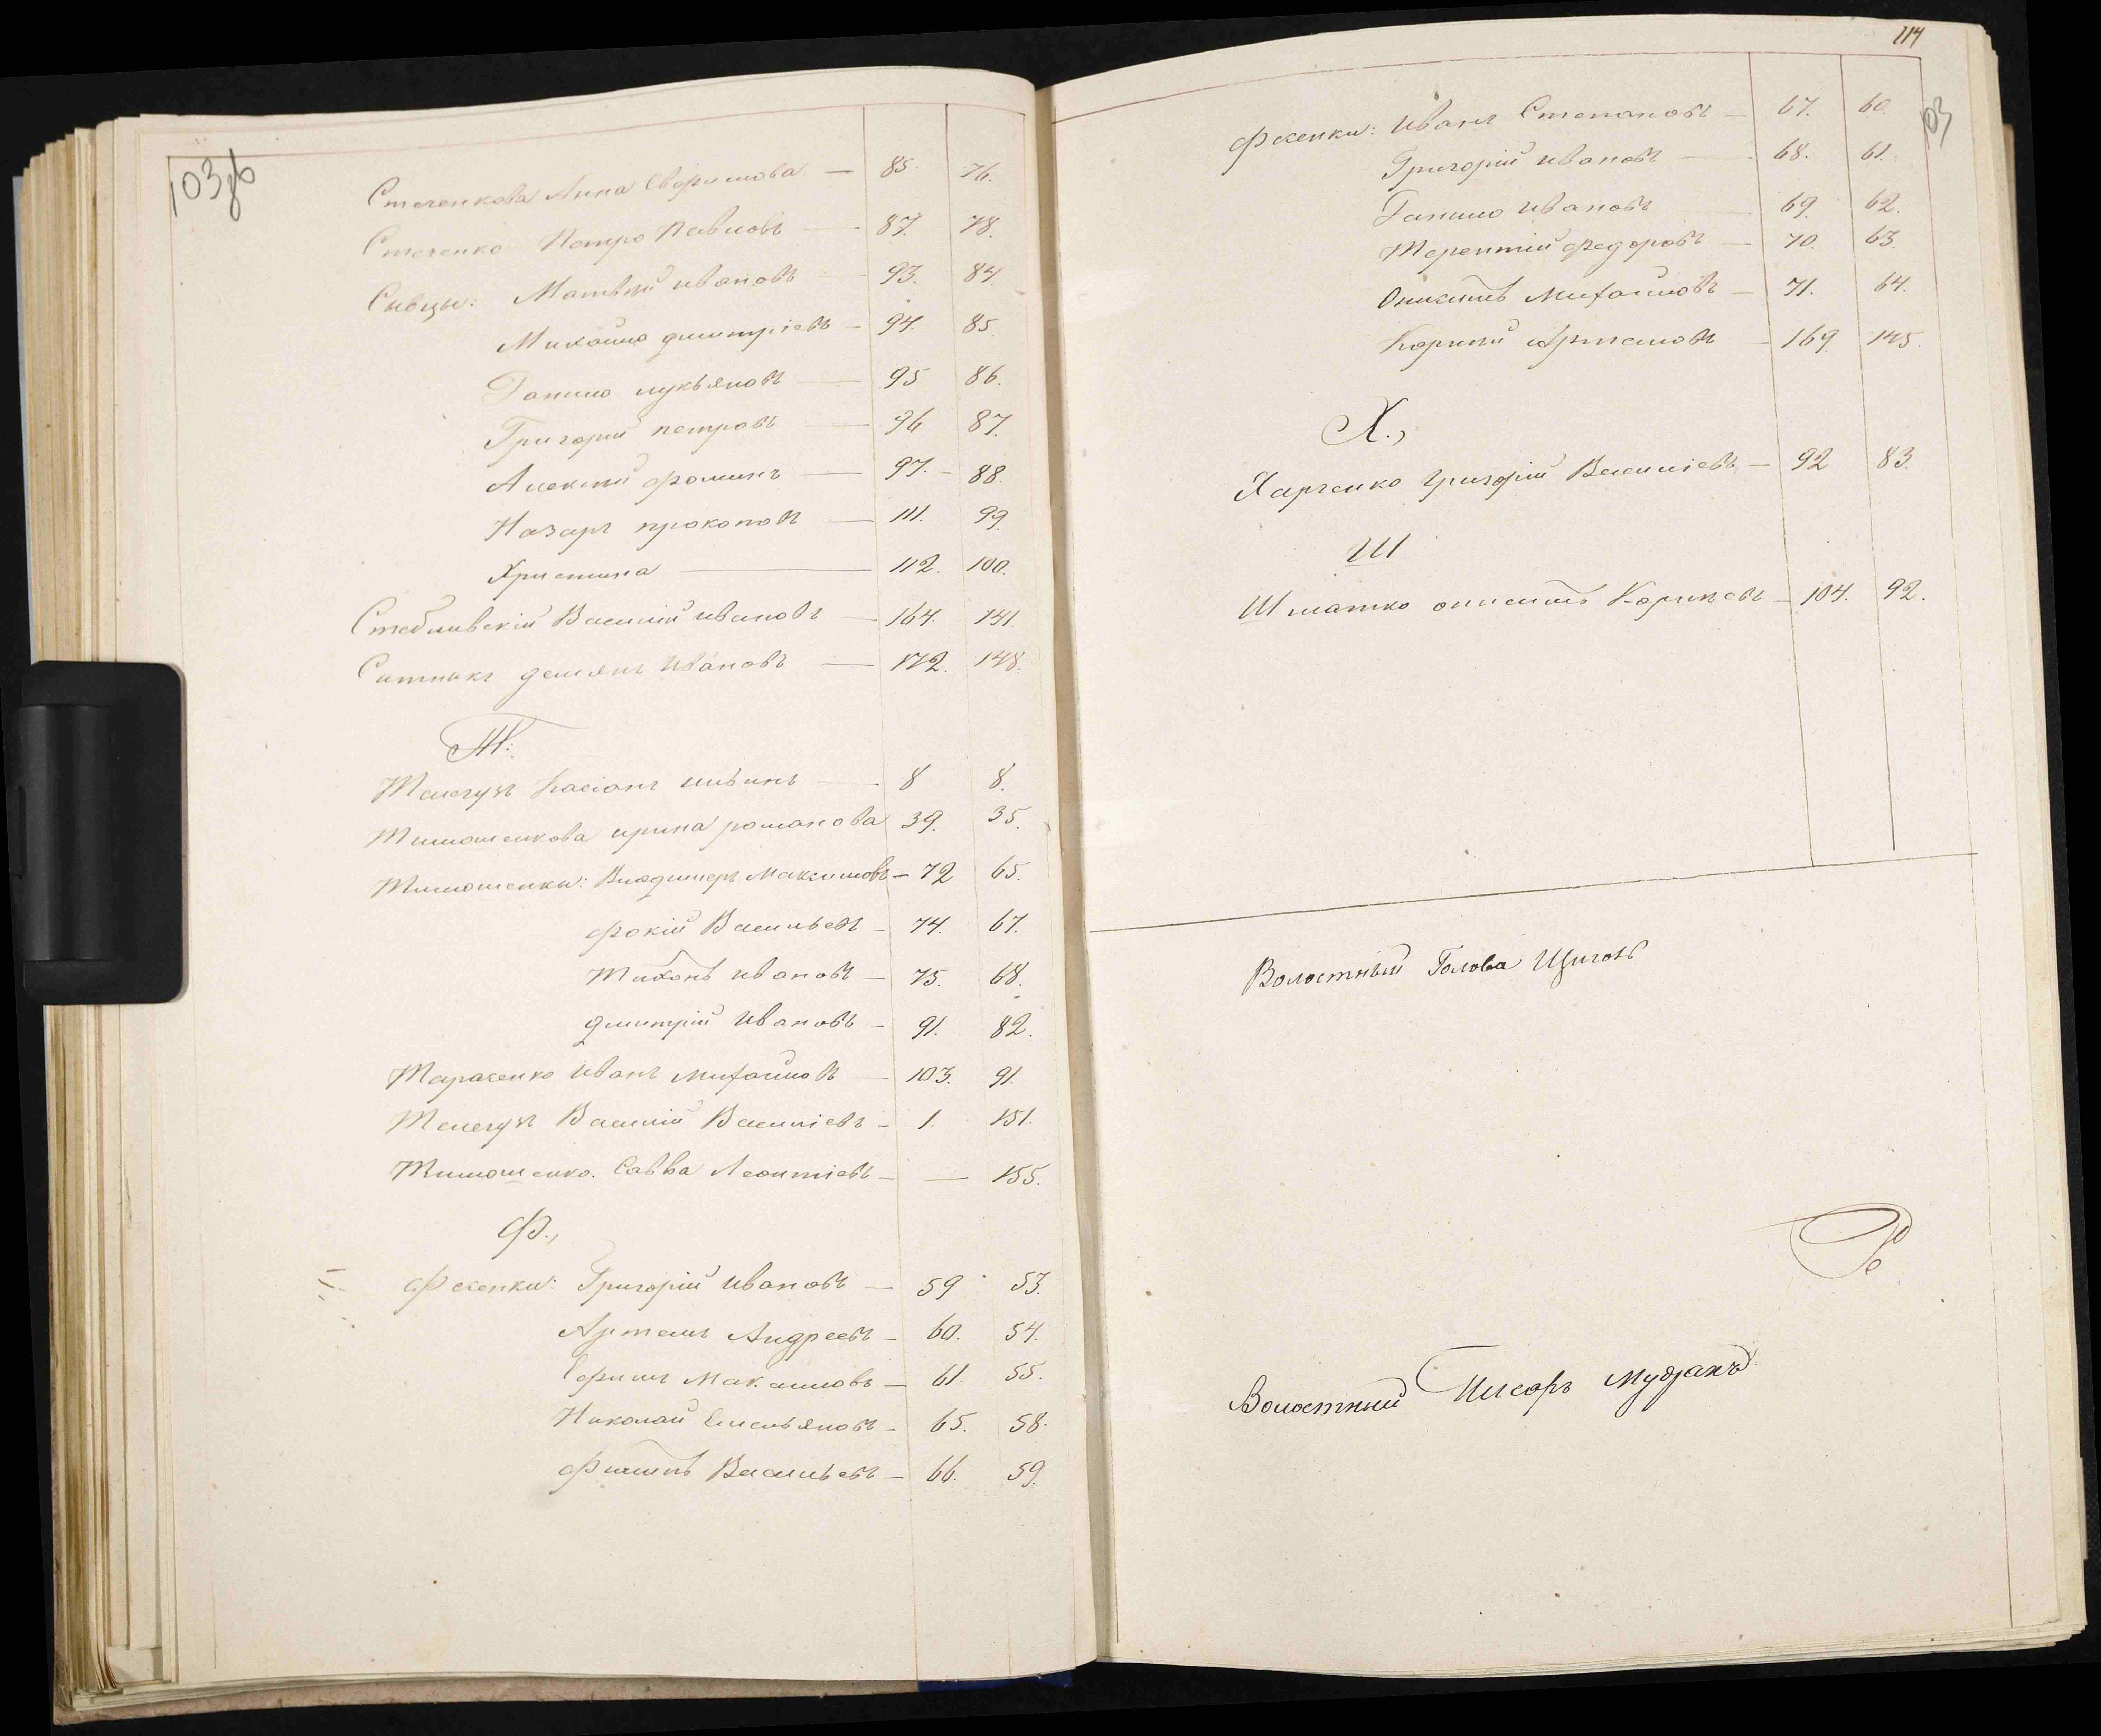 103 зв
Стеченкова Анна Евфимова — 85. 76.
Стеченко Петро Павловъ — 87. 78.
Сивцы: Матвѣй Ивановъ 93. 84.
Михайло Дмитріевъ — 94. 85.
Данило Лукьяновъ — 95 86.
Григорій Петровъ — 96 87.
Алексѣй Фоминъ — 97. 88.
Назаръ Прокоповъ — 111. 99.
Христина — 112. 100.
Стебливскій Василій Ивановъ — 164. 141.
Ситникъ Демянъ Ивановъ — 172. 148.
Т:
Телегузъ Касіанъ 8 8.
Тимошенкова Ирина Романова 39. 35.
Тимошенки: Владимеръ Максимовъ — 72 65.
Фокій Васильевъ — 74. 67.
Тихонъ Ивановъ — 75. 68.
Дмитрій Ивановъ — 91. 82.
Тарасенко Иванъ Михайловъ — 103. 91.
Телегузъ Василій Василіевъ — 1. 151.
Тимошенко. Савва Леонтіевъ — — 155.
Ф.,
Фесенки: Григорій Ивановъ — 59 53.
Артемъ Андреевъ — 60. 54.
Ефимъ Максимовъ — 61. 55.
Николай Емельяновъ — 65. 58.
Филипъ Васильевъ — 66. 59.
114
103
Фесенки: Иванъ Степановъ — 67. 60.
Григорій Ивановъ — 68. 61.
Данило Ивановъ 69. 62.
Терентій Федоровъ — 70. 63.
Онисимъ Михайловъ — 71. 64.
Корнѣй Артемовъ — 169. 145.
Х.,
Харченко Григорій Василіевъ — 92 83.
Ш
Шматко Онисимъ Корнѣевъ — 104. 92.
Волостный Голова
Волостный Писарь